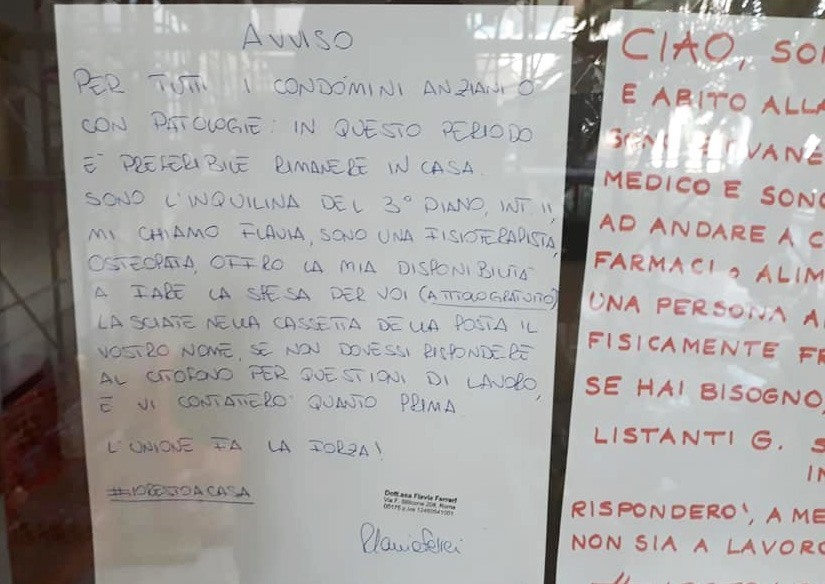 AVVISO
PER TUTTI I CONDOMINI ANZIANI O
CON PATOLOGIE: IN QUESTO PERIODO
E' PREFERIBILE RIMANERE IN CASA.
SONO L'INQUILINA DEL 3° PIANO, INT 11,
MI CHIAMO FLAVIA, SONO UNA FISIOTERAPISTA,
OSTEOPATA, OFFRO LA MIA DISPONIBILITÀ
A FARE LA SPESA PER VOI (A TITOLO GRATUITO)
LASCIATE NELLA CASSETTA DELLA POSTA IL
VOSTRO NOME, SE NON DOVESSI RISPONDERE
AL CITOFONO PER QUESTIONI DI LAVORO,
E VI CONTATTERO' QUANTO PRIMA
L'UNIONE FA LA FORZA!
#IORESTOACASA
Dott.ssa Flavia Ferrari
Roma
Flavia Ferrari
CIAO, SO
E ABITO ALLA
MEDICO E SONO
AD ANDARE A C
FARMACI o ALIM
UNA PERSONA A
FISICAMENTE FR
SE HAI BISOGNO,
LISTANTI G. S
IN
RISPONDERO', A ME
NON SIA A LAVORO